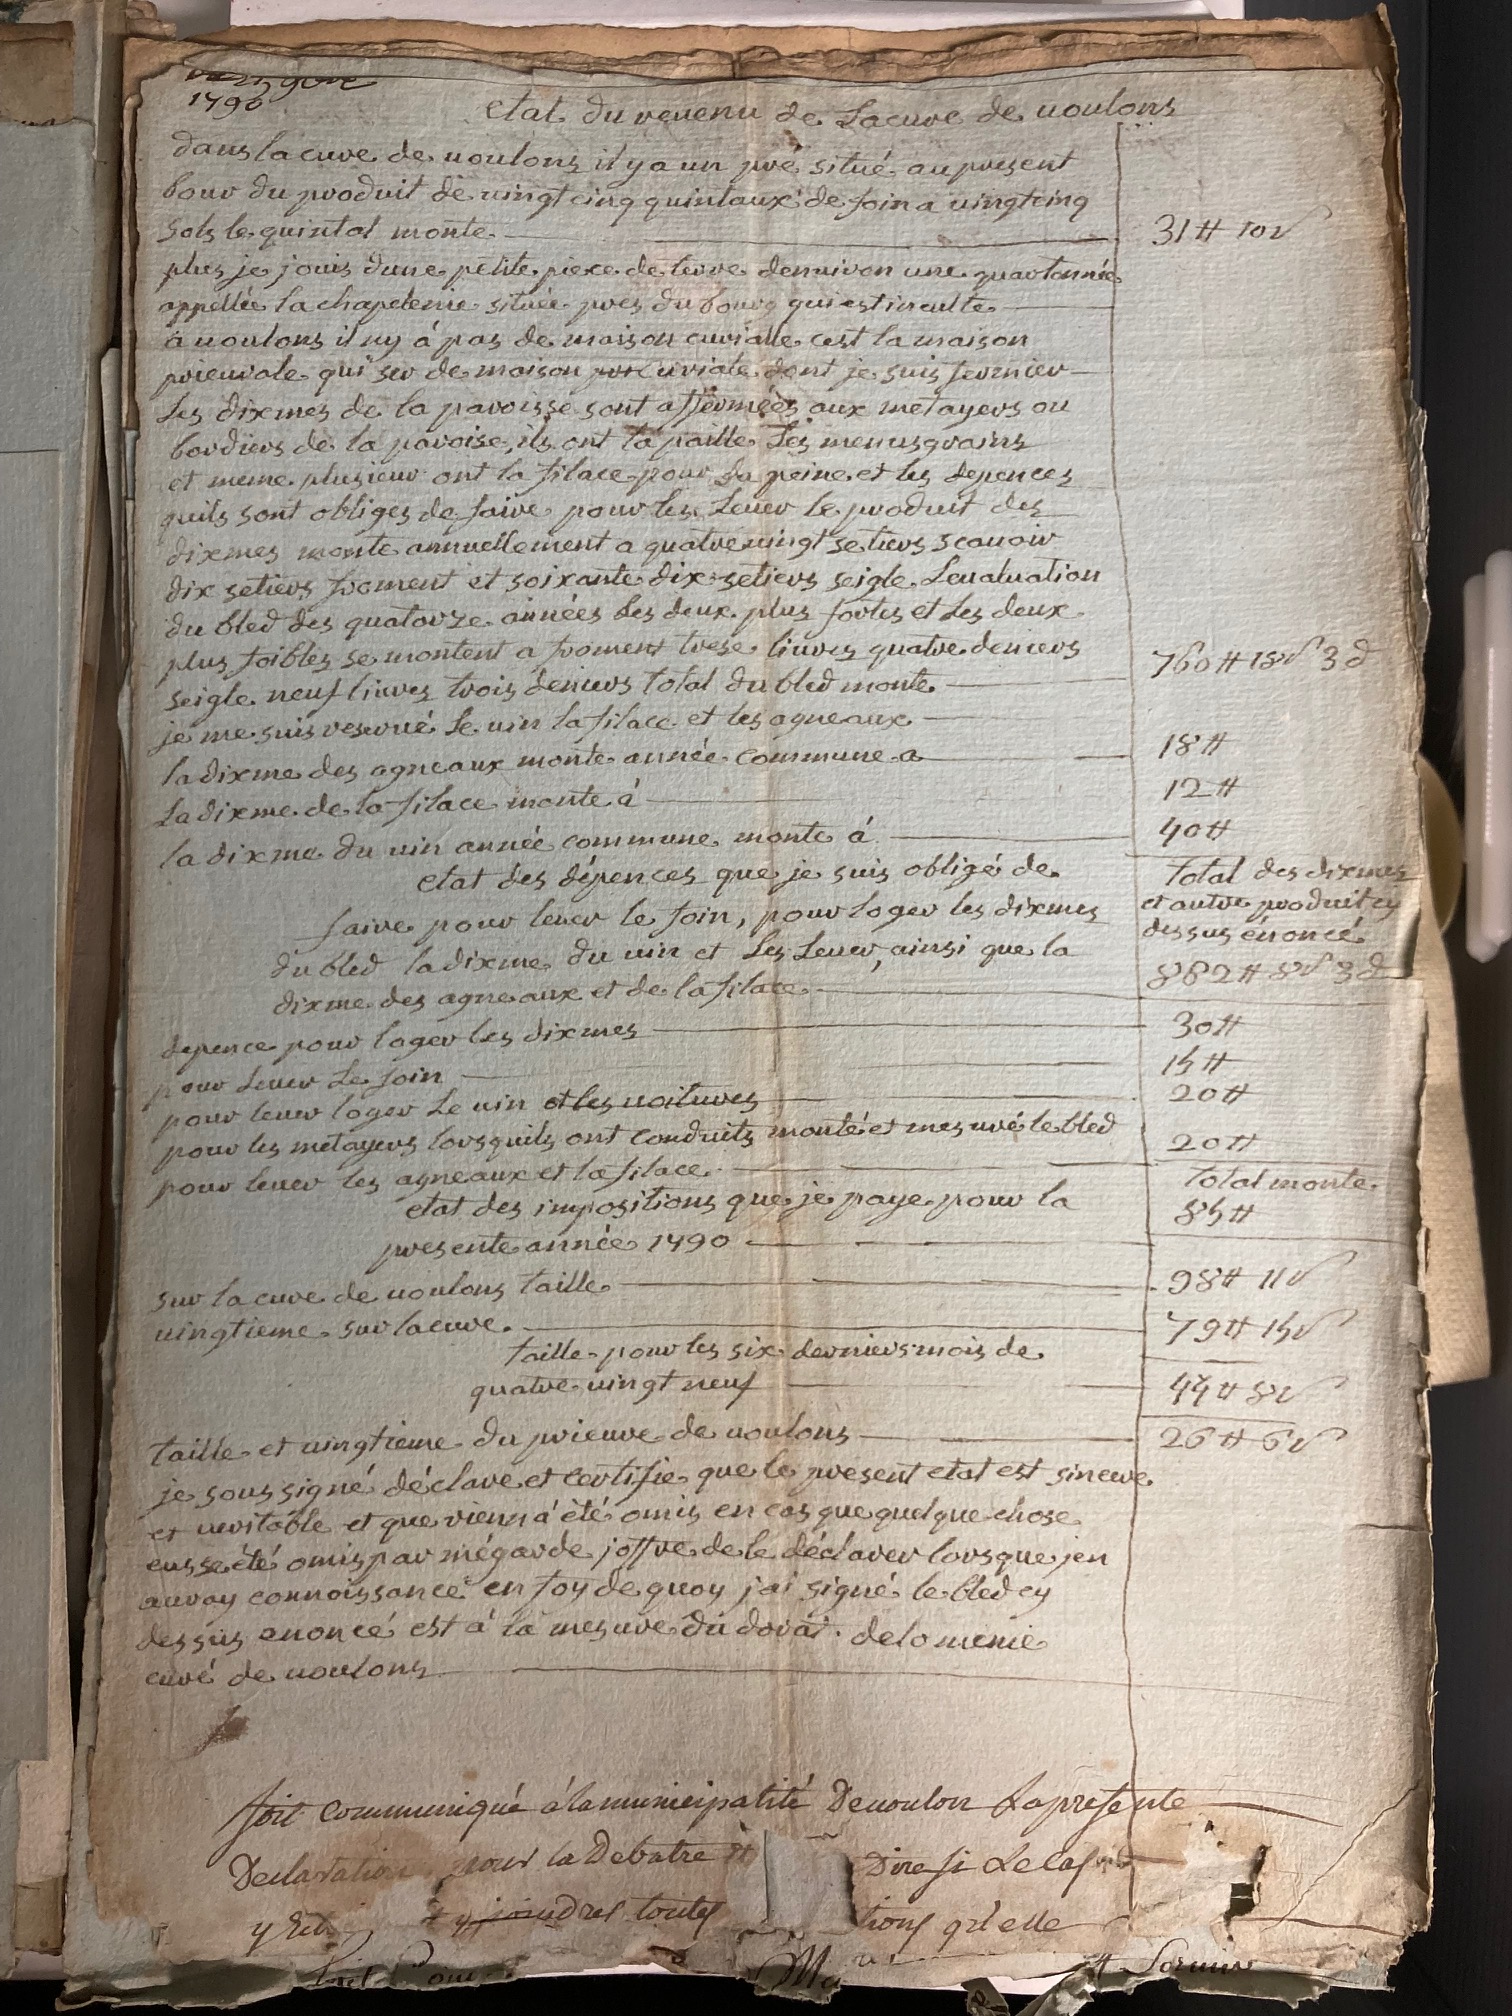 1790
etat du revenu de Lacure de voulons
dans lacure de voulons il y a un pré situé au present
bour du produit de vingt cinq quintaux de foin a vingtcinq
sols le quintal monte 31 ₶ 10 s
plus je jouis dune petite piece de terre denviron une quartonnée
appellée la chapelenie située pres du bourg qui est inculte
à voulons il ny á pas de maison curialle cest la maison
prieurale qui ser de maison curiale dont je suis fermier
Les dixmes de la paroisse sont affermées aux metayers ou
bordiers de la paroise, ils ont la paille Les menus grains
et meme plusieur ont la filace pour La peine et les depences
quils sont obliges de faire pour les Lever le produit des
dixmes monte annuellement a quatrevingt setiers scavoir
dix setiers froment et soixante dix setiers seigle. Levaluation
du bled des quatorze années Les deux plus fortes et Les deux
plus foibles se montent a froment trese livres quatre deniers
seigle neuf livres trois deniers total du bled monte 760 ₶ 18 s 3 d
je me suis reservé Le vin la filace et les agneaux
la dixme des agneaux monte année commune a 18 ₶
La dixme de la filace monte á 12 ₶
la dixme du vin année commune monte á 40 ₶
etat des dépences que je suis obligé de
faire pour lever le foin, pour loger les dixmes
du bled la dixme du vin et Les Lever, ainsi que la
dixme des agneaux et de la filace
total des dixmes
et autre produit cy
dessus énoncé
882 ₶ 8 s 3 d
depence pour loger les dixmes 30 ₶
pour Lever Le foin 15 ₶
pour lever loger Le vin et les voitures 20 ₶
pour les metayers lorsquils ont conduits monté et mesuré le bled
pour lever les agneaux et la filace 20 ₶
total monte
85 ₶
etat des impositions que je paye pour la
presente année 1790
sur la cure de voulons taille 98 ₶ 11 s
vingtieme sur lacure 79 ₶ 15 s
taille pour les six derniers mois de
quatre vingt neuf 44 ₶ 8 s
taille et vingtieme du prieuré de voulons 26 ₶ 6 s
je sous signé déclare et certifie que le present etat est sincere
et veritable et que rienn á été omis en cas que quelque chose
eusse été omis par mégarde joffre de le déclarer lorsque jen
auray connoissance en foy de quoy j'ai signé le bled cy
dessus enoncé est á la mesure du dorat. delomenie
curé de voulons
soit communiqué á la municipalité Devoulon Laprésente
Declaration pour la Debatre Dire si Le cas
y joindres toutes qu'elle